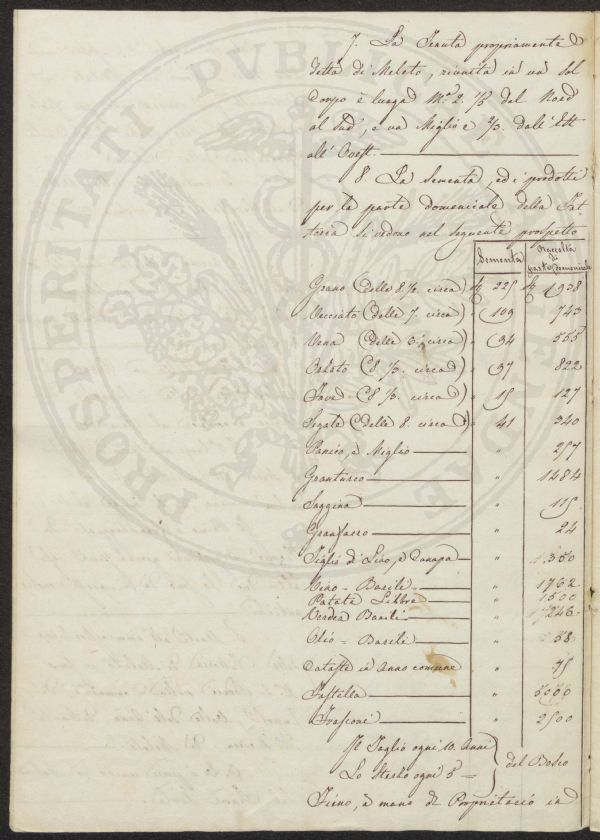 7. La Tenuta propriamente
detta di Meleto, riunita in un sol
Corpo è lunga M.a 2. 1/3 del Nord
al Sud, e un Miglio e 2/3. dall'Est
all'Ovest.
8. La Sementa, ed i prodotti
per la parte domenicale della Fat-
toria si vedono nel seguente prospetto
Sementa Raccolta di parte Domenicale
Grano (delle 8 1/2 circa) 225 1938
Vecciato (delle 7. circa) " 109 743
Vena (delle circa) " 94 555
Orzato (8 1/3. circa) " 97 822
Fave (8 1/3. circa) " 15 127
Segale (delle 8. circa) " 41 340
Panico, e Miglio " 257
Granturco " 1484
Saggina " 115
Granfarro " 24
Tiglio di Lino, e Canapa " 1.350
Vino = Barili " 1762
Patate Libbre " 1500
Verdea Barili " 246
Olio = Barili " 58
Cataste in Anno comune " 75
Fastella " 5000
Frasconi " 2500
Il Taglio ogni 10. Anni
Lo Sterzo ogni 5 = del Bosco
Fieno, a mano di Proprietario in
PROSPERITATI PVBLICAE AVGENDAE